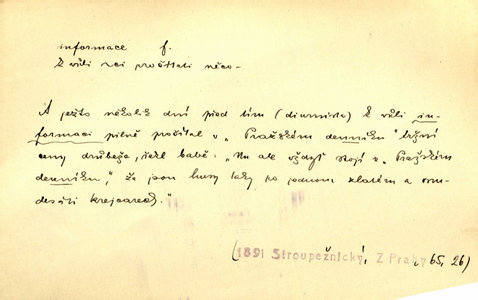 informace f.
K vůli věci pročítati něco –
A ježto několik dní před tím (diurnista) k vůli in-
formaci pilně pročítal v „Pražském denníku" tržní
ceny drůbeže, řekl babě: „Nu ale vždyť stojí v „Pražském
denníku," že jsou husy taky po jednom zlatém a osm-
desáti krejcarech."
(1891 Stroupežnický, Z Prahy, 65, 26)